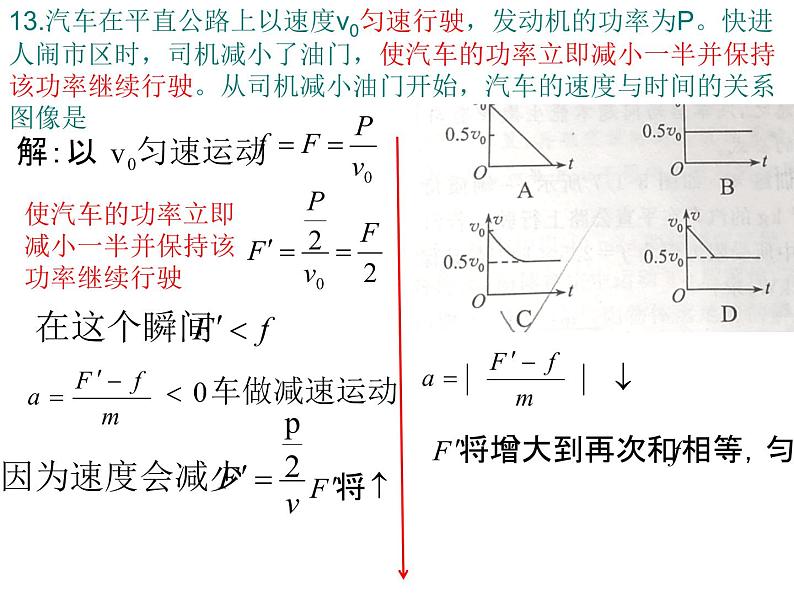 13.汽车在平直公路上以速度v₀匀速行驶，发动机的功率为P。快进
人闹市区时，司机减小了油门，使汽车的功率立即减小一半并保持
该功率继续行驶。从司机减小油门开始，汽车的速度与时间的关系
图像是
解：以 v₀匀速运动 f = F = P/v₀
使汽车的功率立即
减小一半并保持该
功率继续行驶
F′ = (P/2)/v₀ = F/2
在这个瞬间F′ < f
a = (F′ − f)/m < 0 车做减速运动
因为速度会减少F′ = (p/2)/v F′将↑
0.5v₀ O t A
v₀ 0.5v₀ O t B
v v₀ 0.5v₀ O t C
v v₀ 0.5v₀ O t D
a = | (F′ − f)/m | ↓
F′将增大到再次和f相等，匀